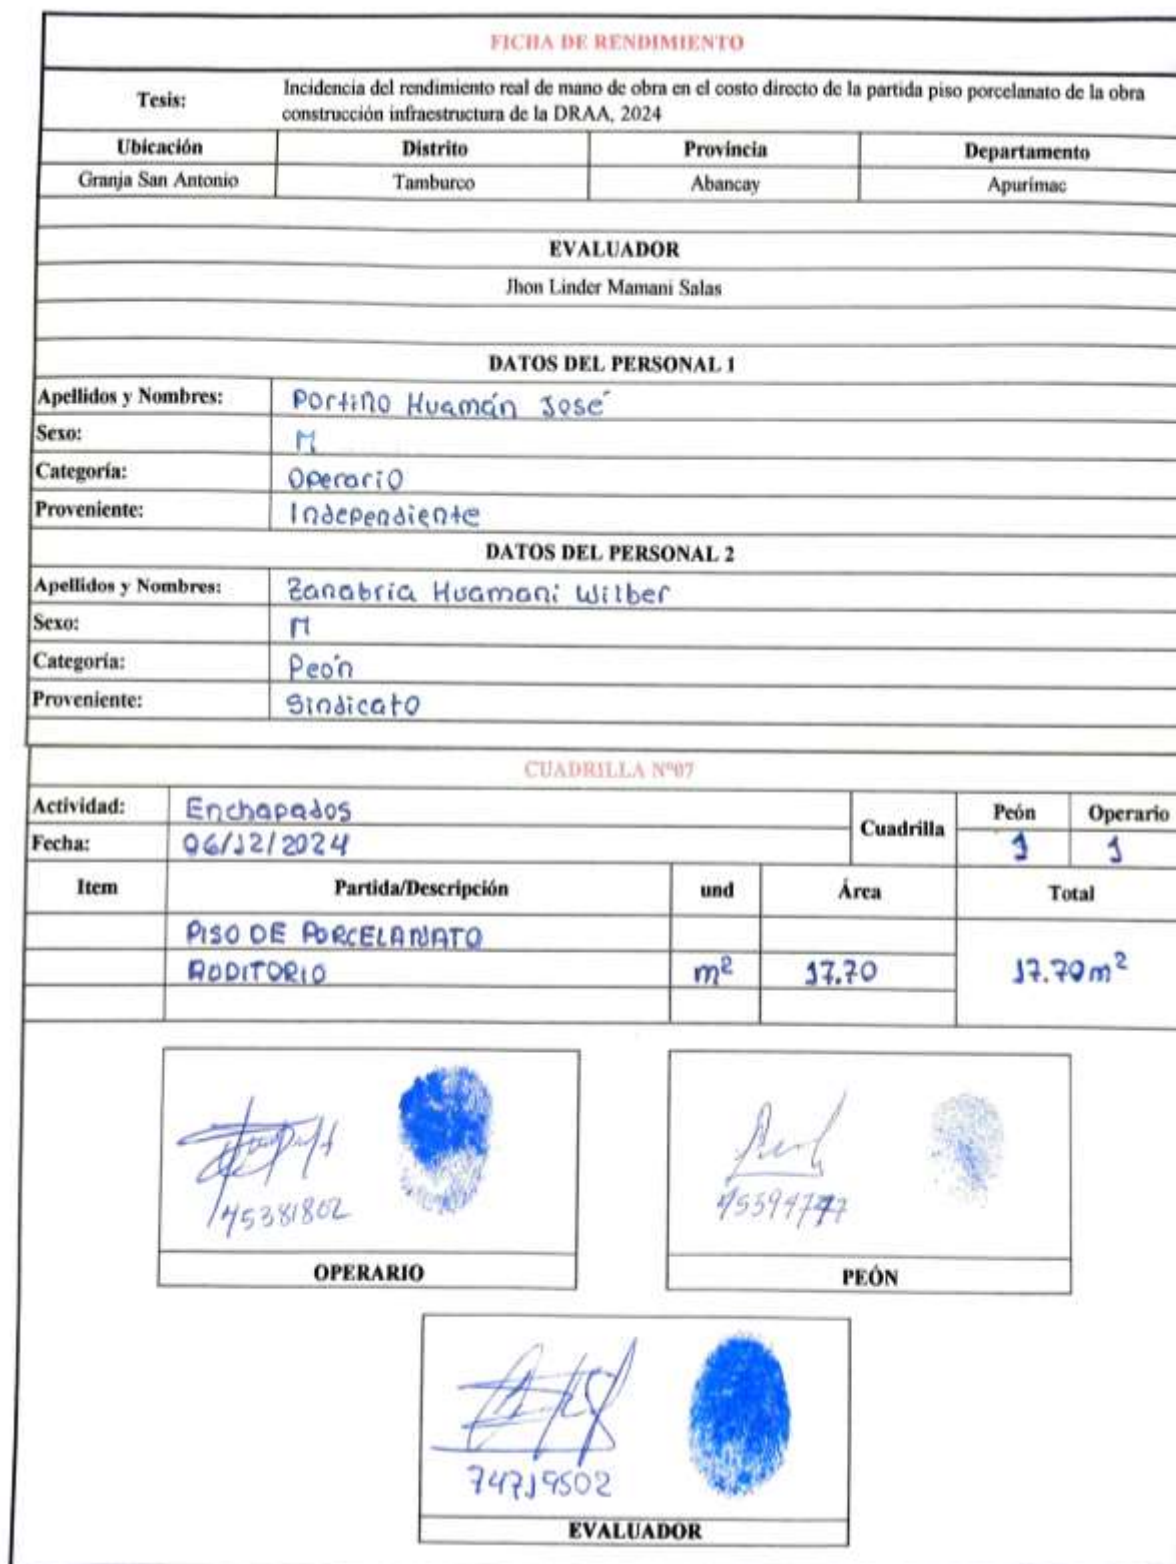 FICHA DE RENDIMIENTO
Tesis: Incidencia del rendimiento real de mano de obra en el costo directo de la partida piso porcelanato de la obra
construcción infraestructura de la DRAA, 2024
Ubicación Distrito Provincia Departamento
Granja San Antonio Tamburco Abancay Apurímac
EVALUADOR
Jhon Linder Mamani Salas
DATOS DEL PERSONAL 1
Apellidos y Nombres: Portiño Huamán José
Sexo: M
Categoría: Operario
Proveniente: Independiente
DATOS DEL PERSONAL 2
Apellidos y Nombres: Zanabria Huamani Wilber
Sexo: M
Categoría: Peón
Proveniente: Sindicato
CUADRILLA N°07
Actividad: Enchapados Cuadrilla Peón Operario
Fecha: 06/12/2024 1 1
Item Partida/Descripción und Área Total
PISO DE PORCELANATO
AUDITORIO m² 17.70 17.70 m²
45381802
OPERARIO
PEÓN
74719502
EVALUADOR